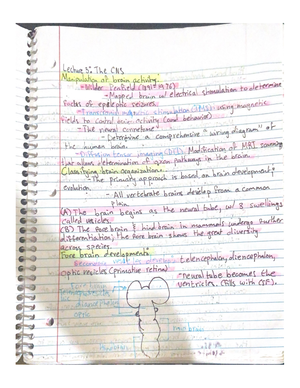 Lecture 5: The CNS
Manipulation of brain activity:
Wilder Penfield (1891-1976)
- Mapped brain w/ electrical stimulation to determine
focus of epileptic seizures.
Transcranial magnetic stimulation (TMS): using magnetic
fields to control brain activity (and behavior)
- The neural connectome:
- Determine a comprehensive "wiring diagram" of
the human brain.
Diffusion tensor imaging (DTI): Modification of MRI scanning
that allows determination of axon pathways in the brain.
Classifying brain organization:
- The primary approach is based on brain development;
evolution
- All vertebrate brains develop from a common
plan.
(A) The brain begins as the neural tube, w/ 3 swellings
called vesicles.
(B) The fore brain & hind brain in mammals undergo further
differentiation; the fore brain shows the great diversity
across species.
Fore brain development:
telencephalon, diencephalon,
optic vesicles (primative retina)
neural tube becomes the
ventricles. (Fills with CSF).